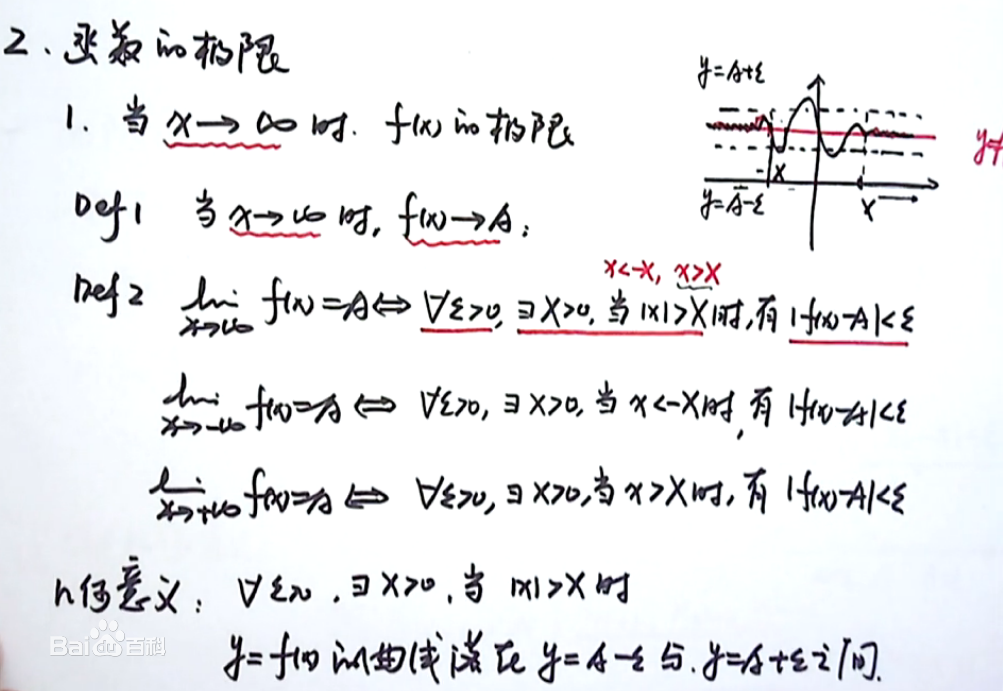 2、函数的极限
1. 当 x→∞ 时. f(x) 的极限
y=A+ε
-X
X
y=A-ε
Def1 当 x→∞ 时, f(x)→A;
x<-X, x>X
Def2 lim x→∞ f(x)=A⇔ ∀ε>0, ∃X>0, 当 |x|>X 时, 有 |f(x)-A|<ε
lim x→-∞ f(x)=A ⇔ ∀ε>0, ∃X>0, 当 x<-X 时, 有 |f(x)-A|<ε
lim x→+∞ f(x)=A ⇔ ∀ε>0, ∃X>0, 当 x>X 时, 有 |f(x)-A|<ε
几何意义: ∀ε>0, ∃X>0, 当 |x|>X 时
y=f(x) 的曲线落在 y=A-ε 与 y=A+ε 之间.
Bai百科